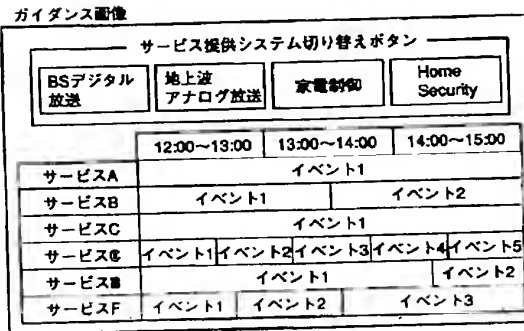 ガイダンス画像
サービス提供システム切り替えボタン
BSデジタル
放送
地上波
アナログ放送
家電制御
Home
Security
12:00～13:00 13:00～14:00 14:00～15:00
サービスA イベント1
サービスB イベント1 イベント2
サービスC イベント1
サービス イベント1 イベント2 イベント3 イベント4 イベント5
サービス イベント1 イベント2
サービスF イベント1 イベント2 イベント3